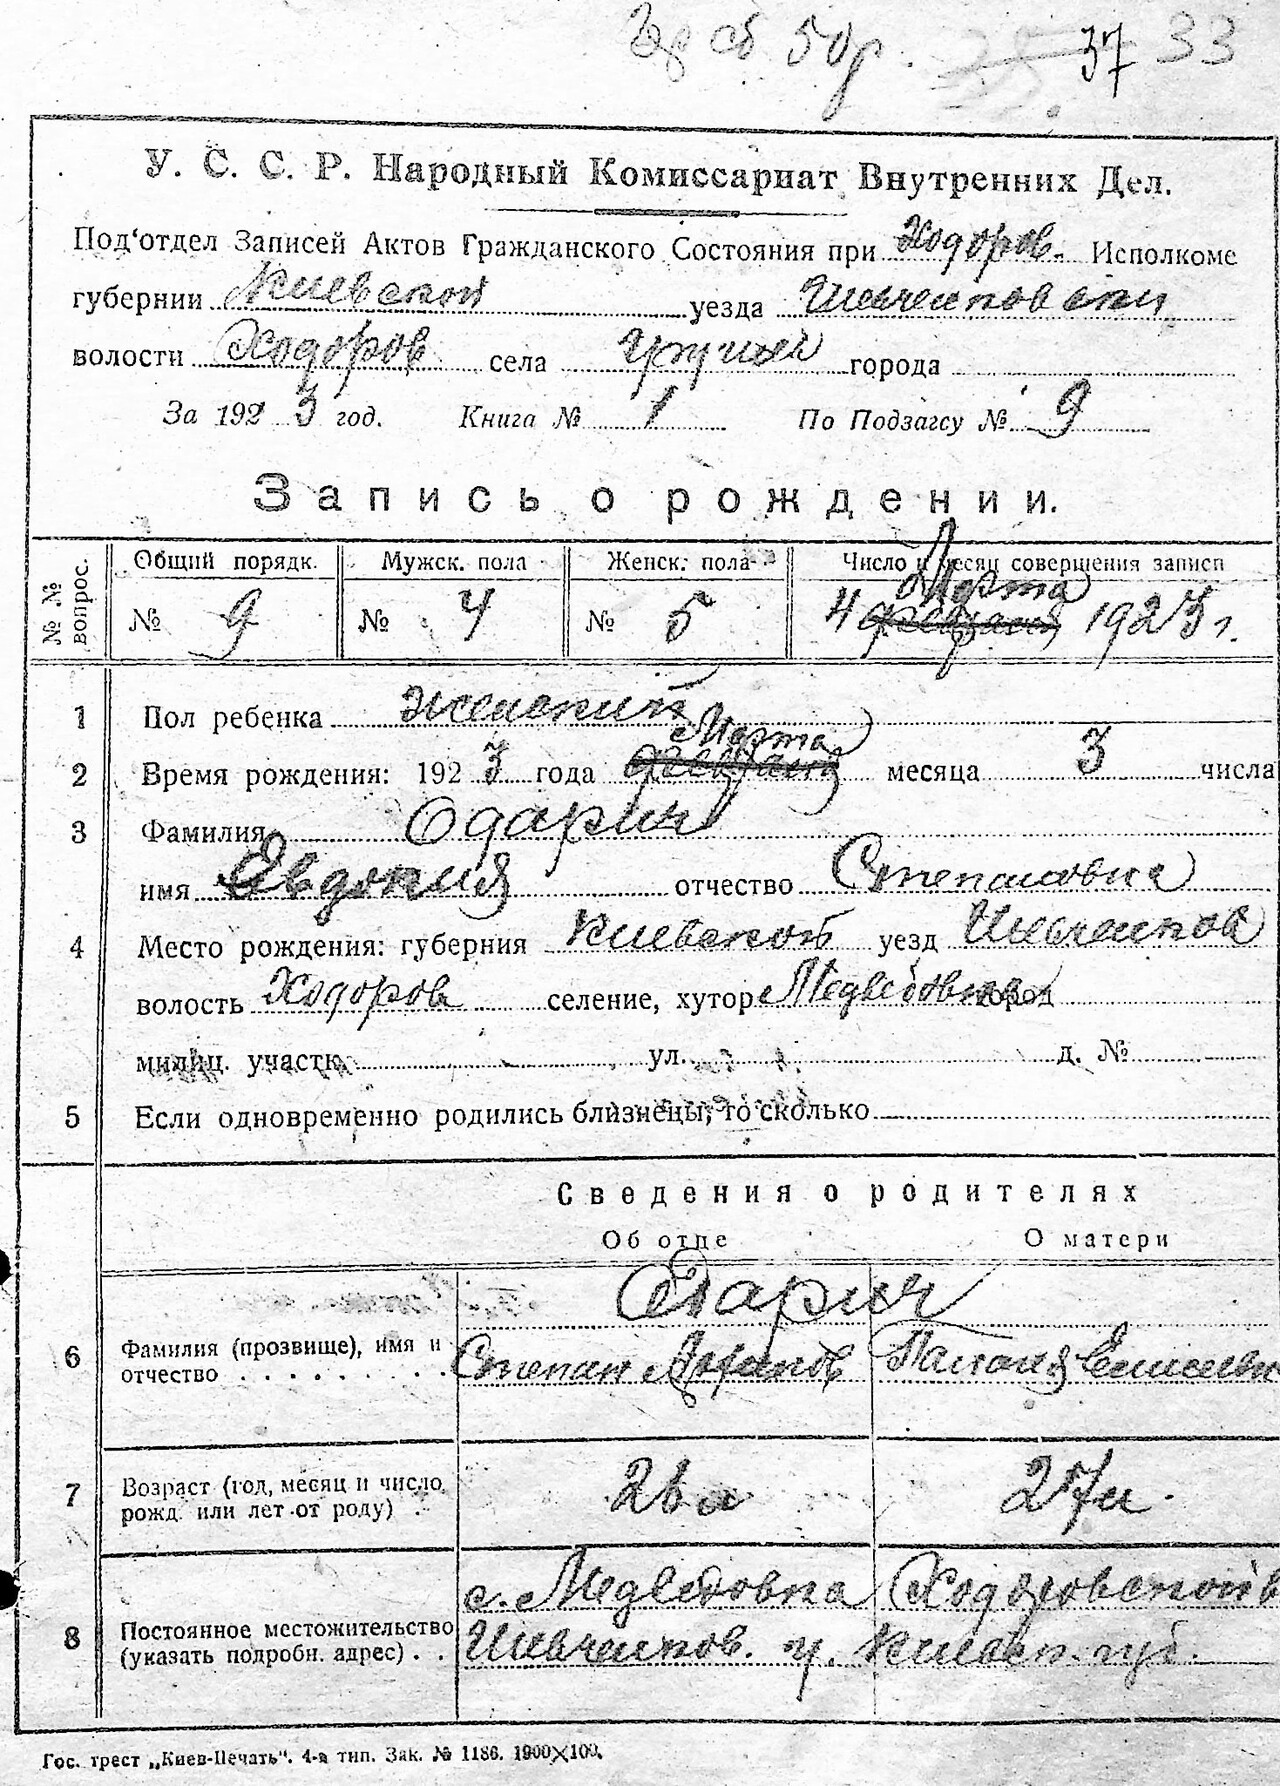 50р. 37 33
У. С. С. Р. Народный Комиссариат Внутренних Дел.
Под'отдел Записей Актов Гражданского Состояния при Ходоров. Исполкоме
губернии Киевской уезда Шевченковский
волости Ходоров села города
За 1923 год. Книга № 1 По Подзагсу № 9
Запись о рождении.
№ № вопрос. Общий порядк. Мужск. пола Женск. пола Число и месяц совершения записи
№ 9 № 4 № 5 4 февраля Марта 1923 г.
1 Пол ребенка женский
2 Время рождения: 1923 года февраля Марта месяца 3 числа
3 Фамилия Одарич
имя Евдокия отчество Степановна
4 Место рождения: губерния Киевской уезд Шевченков
волость Ходоров селение, хутор Медведовка город
милиц. участк. ул. д. №
5 Если одновременно родились близнецы, то сколько
Сведения о родителях
Об отце О матери
Одарич
6 Фамилия (прозвище), имя и отчество Степан Паланя Елисеевн
7 Возраст (год, месяц и число рожд. или лет от роду) 27л.
8 Постоянное местожительство (указать подробн. адрес) с. Медведовка Ходоровской в
Шевченков. у. Киевск. губ.
Гос. трест „Киев-Печать". 4-я тип. Зак. № 1186. 1900×100.